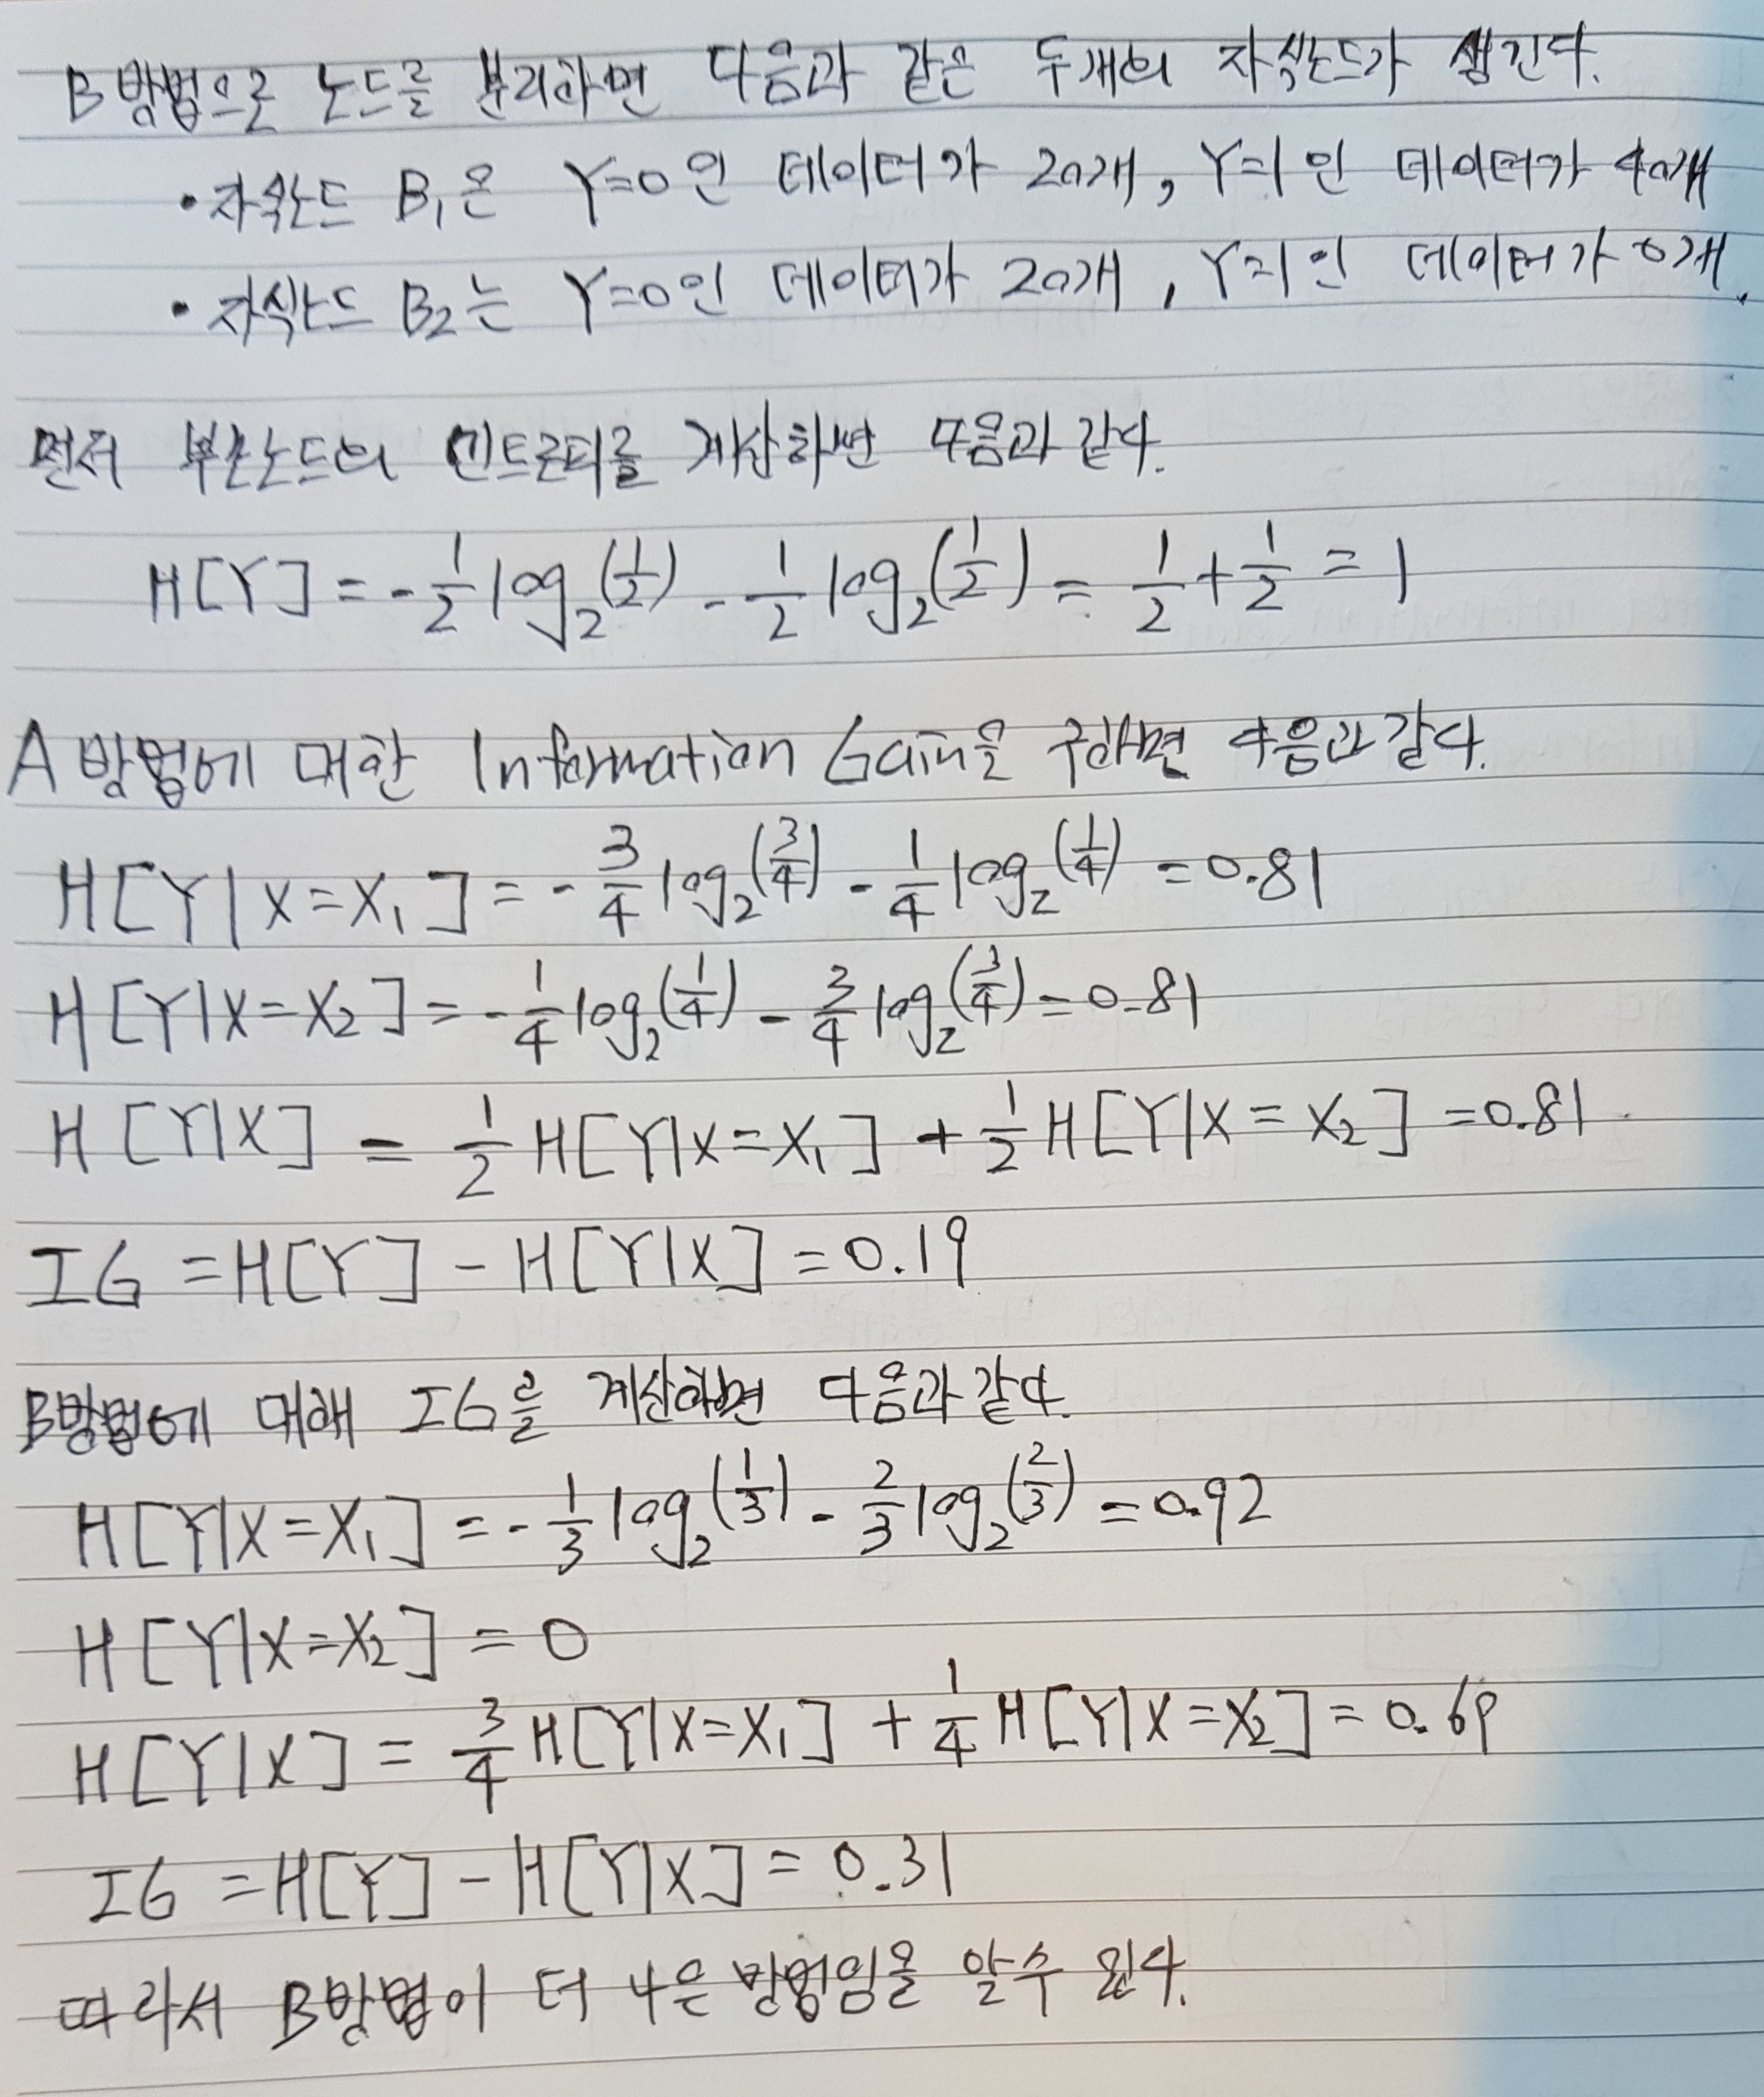 B방법으로 노드를 분리하면 다음과 같은 두개의 자식노드가 생긴다.
• 자식노드 B₁은 Y=0인 데이터가 20개, Y=1인 데이터가 40개
• 자식노드 B₂는 Y=0인 데이터가 20개, Y=1인 데이터가 0개.
먼저 부모노드의 엔트로피를 계산하면 다음과 같다.
H[Y] = -1/2 log₂(1/2) - 1/2 log₂(1/2) = 1/2 + 1/2 = 1
A방법에 대한 Information Gain을 구하면 다음과 같다.
H[Y|X=X₁] = -3/4 log₂(3/4) - 1/4 log₂(1/4) = 0.81
H[Y|X=X₂] = -1/4 log₂(1/4) - 3/4 log₂(3/4) = 0.81
H[Y|X] = 1/2 H[Y|X=X₁] + 1/2 H[Y|X=X₂] = 0.81
IG = H[Y] - H[Y|X] = 0.19
B방법에 대해 IG를 계산하면 다음과 같다.
H[Y|X=X₁] = -1/3 log₂(1/3) - 2/3 log₂(2/3) = 0.92
H[Y|X=X₂] = 0
H[Y|X] = 3/4 H[Y|X=X₁] + 1/4 H[Y|X=X₂] = 0.69
IG = H[Y] - H[Y|X] = 0.31
따라서 B방법이 더 나은 방법임을 알수 있다.